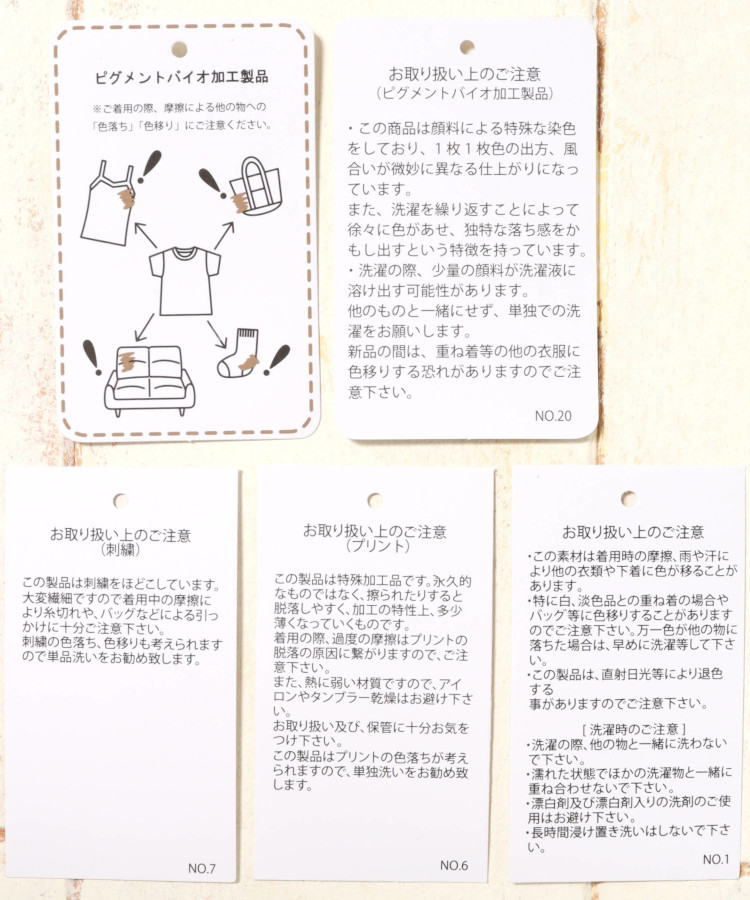 ピグメントバイオ加工製品
※ご着用の際、摩擦による他の物への
「色落ち」「色移り」にご注意ください。
お取り扱い上のご注意
(ピグメントバイオ加工製品)
・この商品は顔料による特殊な染色
をしており、1枚1枚色の出方、風
合いが微妙に異なる仕上がりになっ
ています。
また、洗濯を繰り返すことによって
徐々に色があせ、独特な落ち感をか
もし出すという特徴を持っています。
・洗濯の際、少量の顔料が洗濯液に
溶け出す可能性があります。
他のものと一緒にせず、単独での洗
濯をお願いします。
新品の間は、重ね着等の他の衣服に
色移りする恐れがありますのでご注
意下さい。
NO.20
お取り扱い上のご注意
(刺繍)
この製品は刺繍をほどこしています。
大変繊細ですので着用中の摩擦に
より糸切れや、バッグなどによる引っ
かけに十分ご注意下さい。
刺繍の色落ち、色移りも考えられます
ので単品洗いをお勧め致します。
NO.7
お取り扱い上のご注意
(プリント)
この製品は特殊加工品です。永久的
なものではなく、擦られたりすると
脱落しやすく、加工の特性上、多少
薄くなっていくものです。
着用の際、過度の摩擦はプリントの
脱落の原因に繋がりますので、ご注
意下さい。
また、熱に弱い材質ですので、アイ
ロンやタンブラー乾燥はお避け下さ
い。
お取り扱い及び、保管に十分お気を
つけ下さい。
この製品はプリントの色落ちが考え
られますので、単独洗いをお勧め致
します。
NO.6
お取り扱い上のご注意
・この素材は着用時の摩擦、雨や汗に
より他の衣類や下着に色が移ることが
あります。
・特に白、淡色品との重ね着の場合や
バッグ等に色移りすることがあります
のでご注意下さい。万一色が他の物に
落ちた場合は、早めに洗濯等して下さ
い。
・この製品は、直射日光等により退色
する
事がありますのでご注意下さい。
[洗濯時のご注意]
・洗濯の際、他の物と一緒に洗わない
で下さい。
・濡れた状態でほかの洗濯物と一緒に
重ね合わせないで下さい。
・漂白剤及び漂白剤入りの洗剤のご使
用はお避け下さい。
・長時間浸け置き洗いはしないで下さ
い。
NO.1